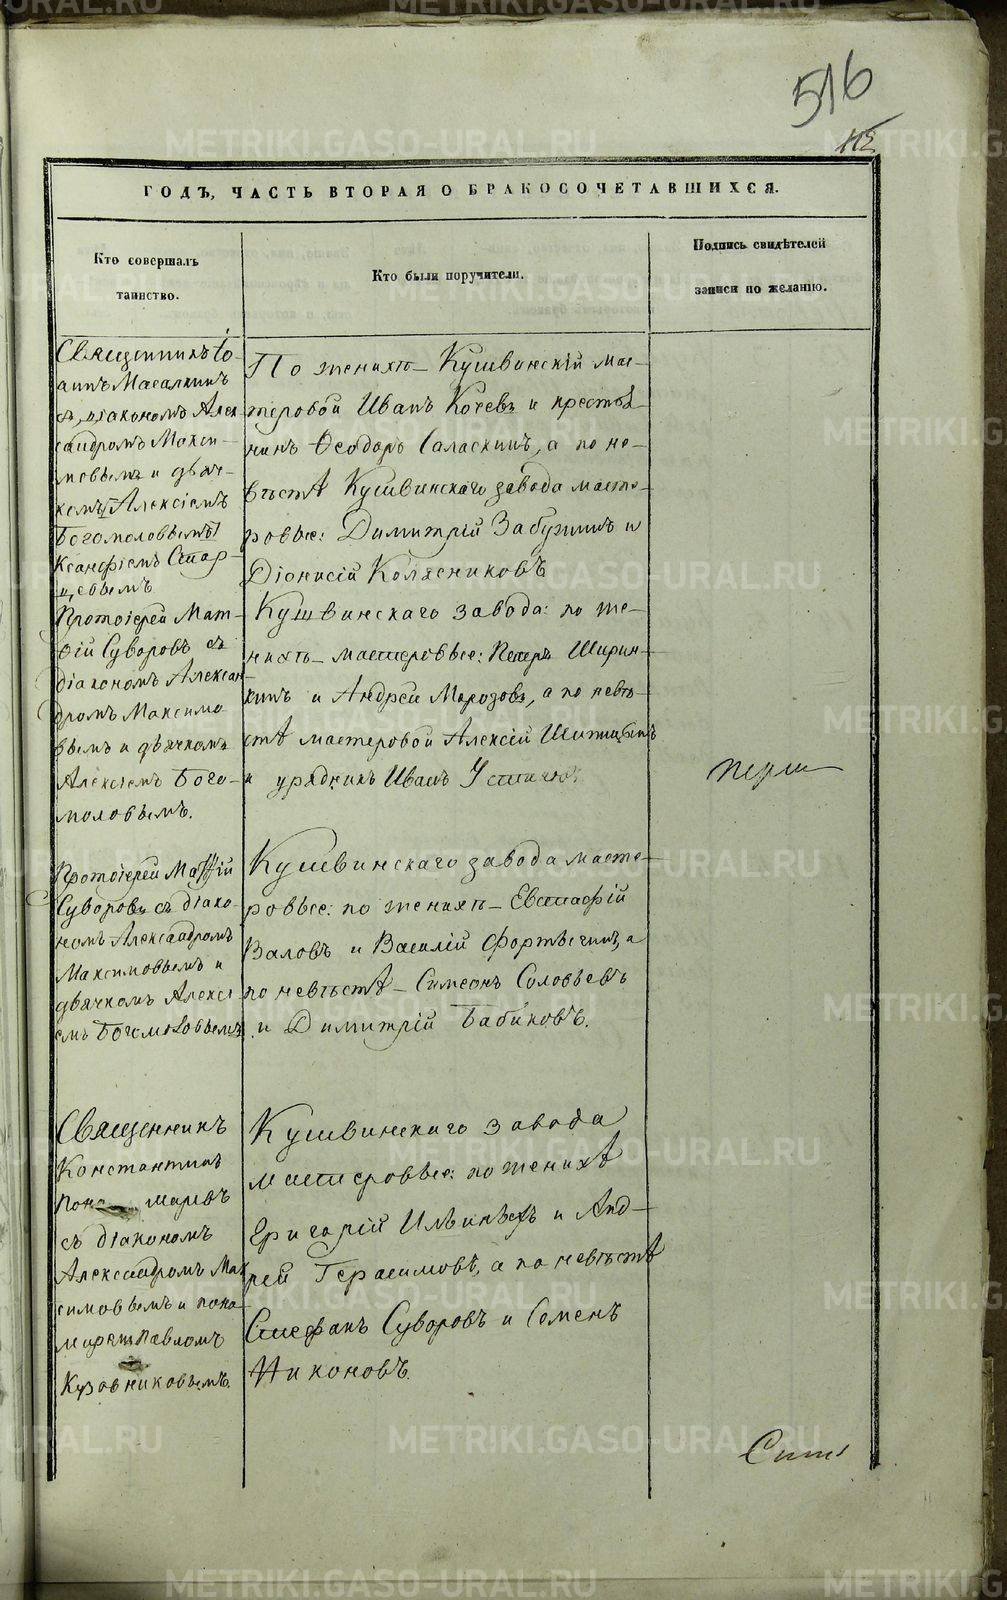 516
112
ГОДЪ, ЧАСТЬ ВТОРАЯ О БРАКОСОЧЕТАВШИХСЯ.
Кто совершалъ
таинство.
Кто были поручители.
Подпись свидѣтелей
записи по желанію.
Священникъ Іо-
аннъ Масалкинъ
съ діакономъ Алек
сандромъ Макси-
мовымъ и дьяч-
комъ Алексіемъ
Богомоловымъ
Ксанфіемъ Стар-
цевымъ
По женихѣ – Кушвинскій мас-
теровой Иванъ Кочевъ и крестья-
нинъ Ѳеодоръ Саласкинъ, а по не-
вѣстѣ Кушвинскаго завода масте-
ровые: Димитрій Забузинъ и
Діонисій Колясниковъ
Протоіерей Мат-
ѳій Суворовъ съ
діакономъ Алексан
дромъ Максимо-
вымъ и дьячкомъ
Алексіемъ Бого-
моловымъ.
Кушвинскаго завода: по же-
нихѣ – мастеровые: Петръ Ширин-
кинъ и Андрей Морозовъ, а по невѣ-
стѣ мастеровой Алексій Шитицынъ
и урядникъ Иванъ
Протоіерей Матѳій
Суворовъ съ діако-
номъ Александромъ
Максимовымъ и
дьячкомъ Алексі-
емъ Богомоловымъ
Кушвинскаго завода масте-
ровые: по женихѣ – Евстафій
Валовъ и Василій Фортыгинъ, а
по невѣстѣ – Симеонъ Соловьевъ
и Димитрій Бабиковъ.
Священникъ
Константинъ
Пономаревъ
съ діакономъ
Александромъ Мак
симовымъ и поно-
маремъ Павломъ
Кузовниковымъ.
Кушвинскаго завода
мастеровые: по женихѣ
Григорій Ильиныхъ и Анд-
рей Герасимовъ, а по невѣстѣ
Стефанъ Суворовъ и Семенъ
Никоновъ.
METRIKI.GASO-URAL.RU